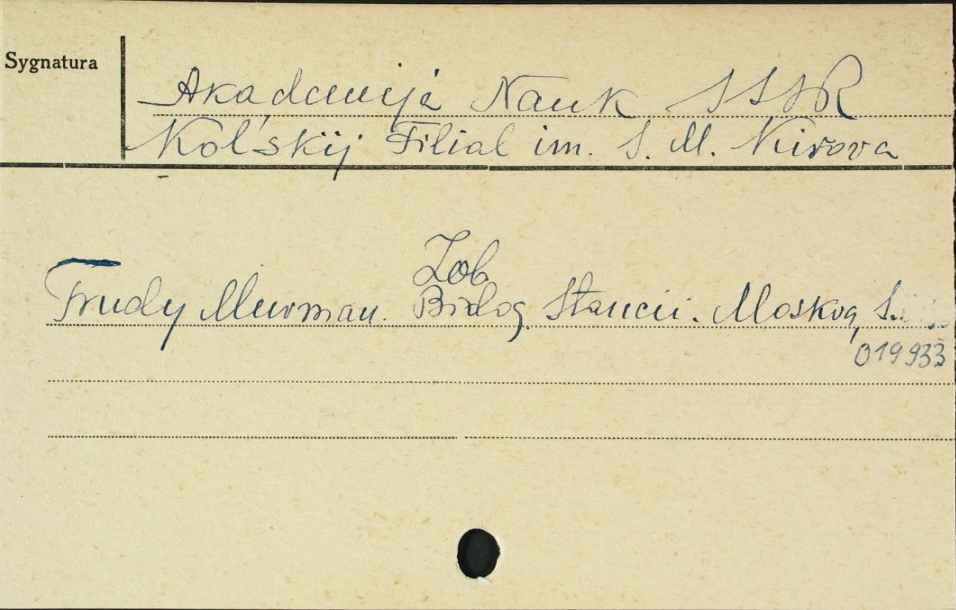 Sygnatura
Akademija Nauk SSSR
Kol'skij Filial im. S. M. Kirova
Zob
Trudy Murman. Biolog. Stancii. Moskva, S.
019933